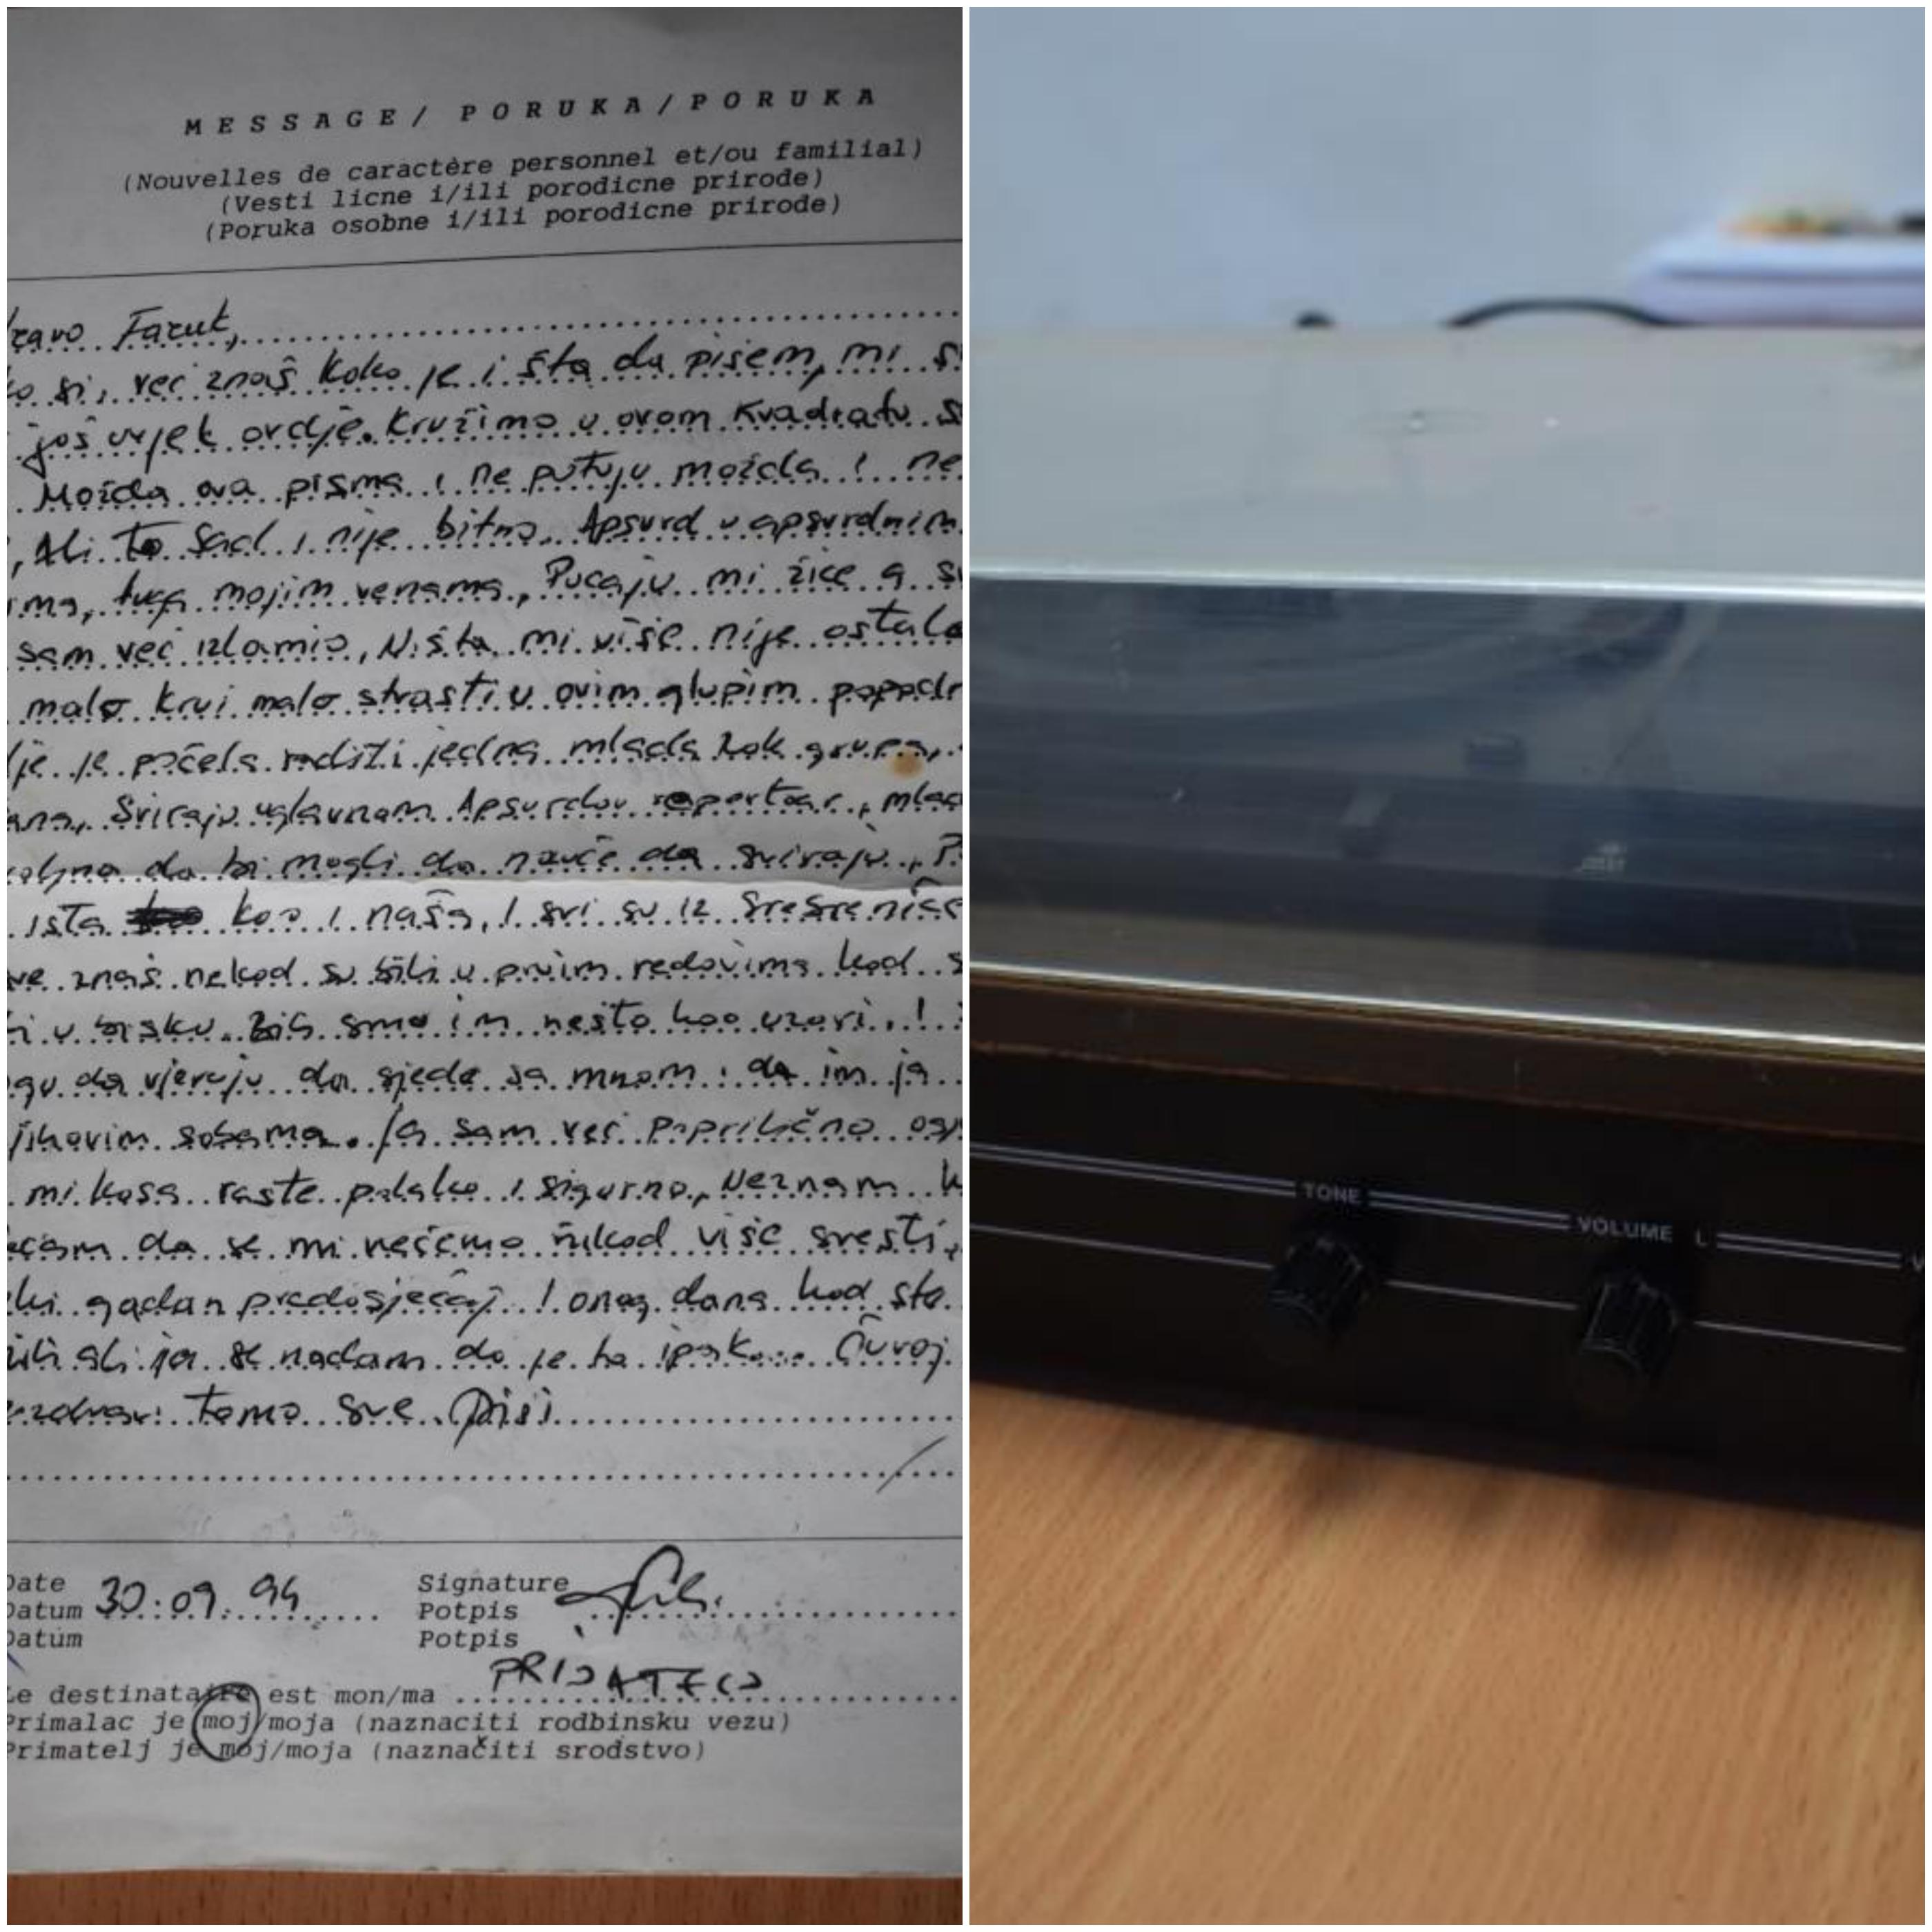 MESSAGE/ PORUKA/PORUKA
(Nouvelles de caractère personnel et/ou familial)
(Vesti licne i/ili porodicne prirode)
(Poruka osobne i/ili porodicne prirode)
Faruk,
si, već znaš kako je i šta da pišem, mi
još uvjek ovdje. Kružimo u ovom kvadratu
Možda ova pisma i ne putuju možda i ne
, Ali to sad i nije bitno. Apsurd u apsurdnim
tuga mojim venama, Pucaju mi žice a
sam već izlamio, Ništa mi više nije ostalo
malo krvi malo strasti u ovim glupim
je počela raditi jedna mlada Rok grupa,
Sviraju uglavnom Apsurdov repertoar,
da bi mogli da nauče da sviraju,
ista kao i naša, I svi su iz Srebrenice
znaš nekad su bili u prvim redovima kad
u bisku. Bili smo im nešto kao uzori, I
da vjeruju da sjede sa mnom i da im ja
sobama. Ja sam već poprilično
mi kosa raste polako i sigurno, Neznam
da se mi nećemo nikad više sresti,
gadan predosjećaj I onog dana kad
ali ja se nadam da je to ipak... Čuvaj
tamo sve Piši
Date
Datum 30.09.94
Datum
Signature
Potpis
Potpis
Le destinataire est mon/ma PRIJATELJ
Primalac je moj/moja (naznaciti rodbinsku vezu)
Primatelj je moj/moja (naznačiti srodstvo)
TONE
VOLUME L